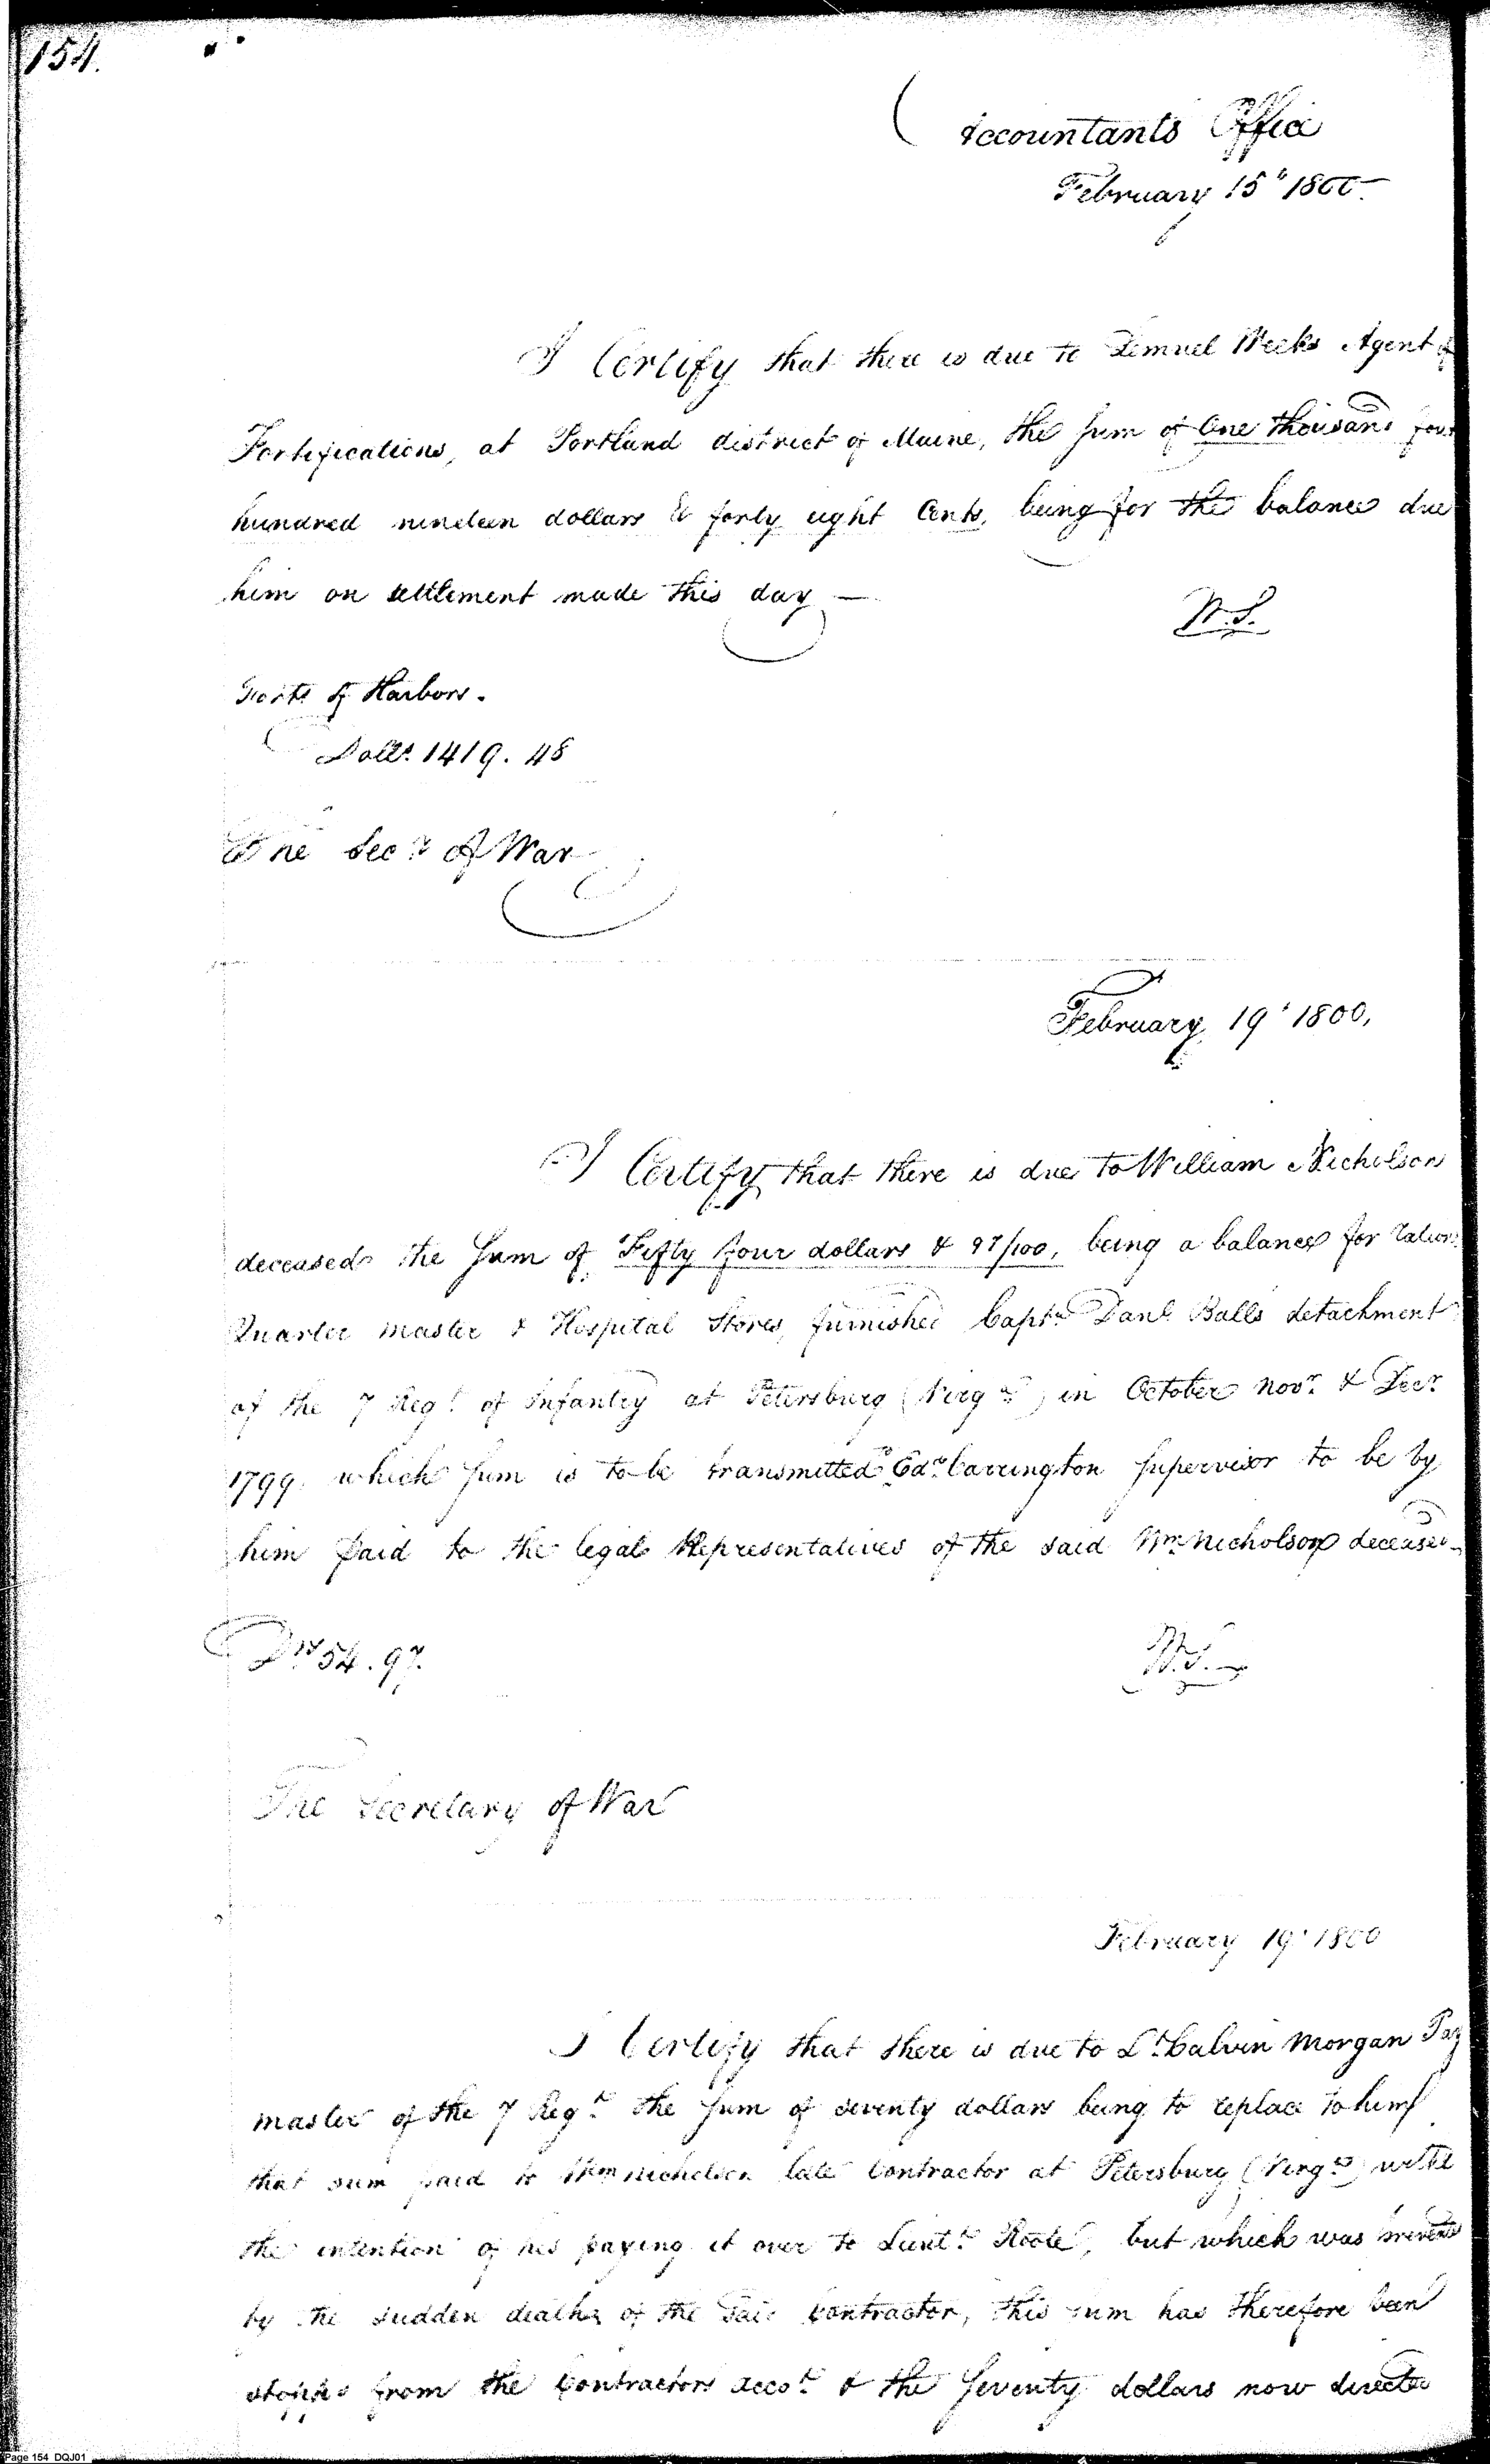 154.
Accountants Office
February 15" 1800
I Certify that there is due to Lemuel Weeks Agent of
Fortifications, at Portland district of Maine, the sum of One thousand four
hundred nineteen dollars & forty eight Cents, being for the balance due
him on settlement made this day —
W.S.
Forts & Harbors.
Dolls. 1419.48
The Secy. of War
February 19' 1800,
I Certify that there is due to William Nicholson
deceased the sum of Fifty four dollars & 97/100, being a balance for rations
Quarter master & Hospital Stores, furnished Captn. Danl. Balls detachment
of the 7 Regt. of Infantry at Petersburg (Virga.) in October Novr. & Decr.
1799. which sum is to be transmitted to Edwd. Carrington supervisor to be by
him paid to the legal Representatives of the said Wm. Nicholson deceased
Drs 54.97.
W.S.
The Secretary of War
February 19' 1800
I Certify that there is due to Lt. Calvin Morgan Pay
master of the 7 Regt. the sum of seventy dollars being to replace to him
that sum paid to Wm Nicholson late Contractor at Petersburg (Virga.) with
the intention of his paying it over to Lieutt. Roote, but which was prevented
by the sudden death of the said Contractor, this sum has therefore been
stopped from the Contractors accot. & the seventy dollars now directed
Page 154 DQJ01